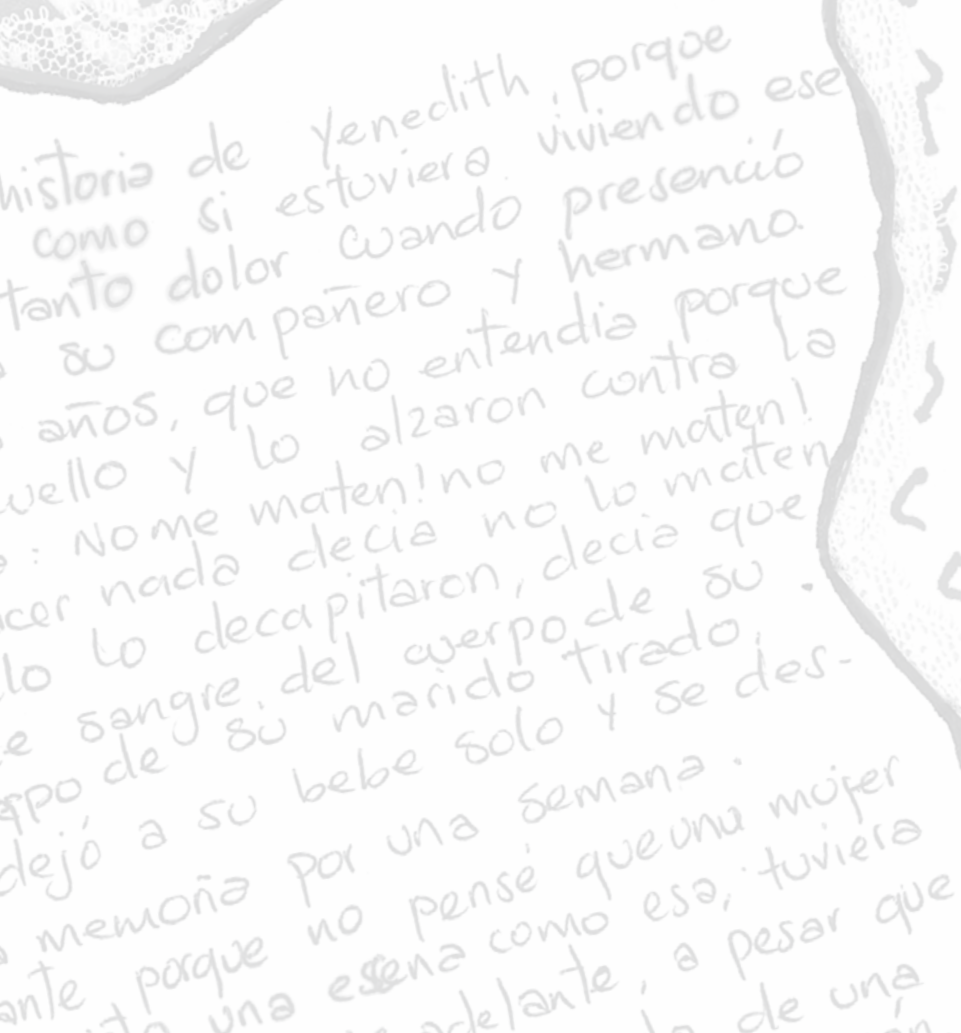 historia de Yenedith, porque
como si estuviera viviendo ese
tanto dolor cuando presenció
su compañero y hermano.
años, que no entendia porque
uello y lo alzaron contra la
: No me maten! no me maten!
cer nada decia no lo maten
lo lo decapitaron, decia que
e sangre del cuerpo de su .
po de su marido tirado,
dejó a su bebe solo y se des-
memoria por una semana.
ante, porque no pensé que una mujer
una escena como esa, tuviera
adelante, a pesar que
de una